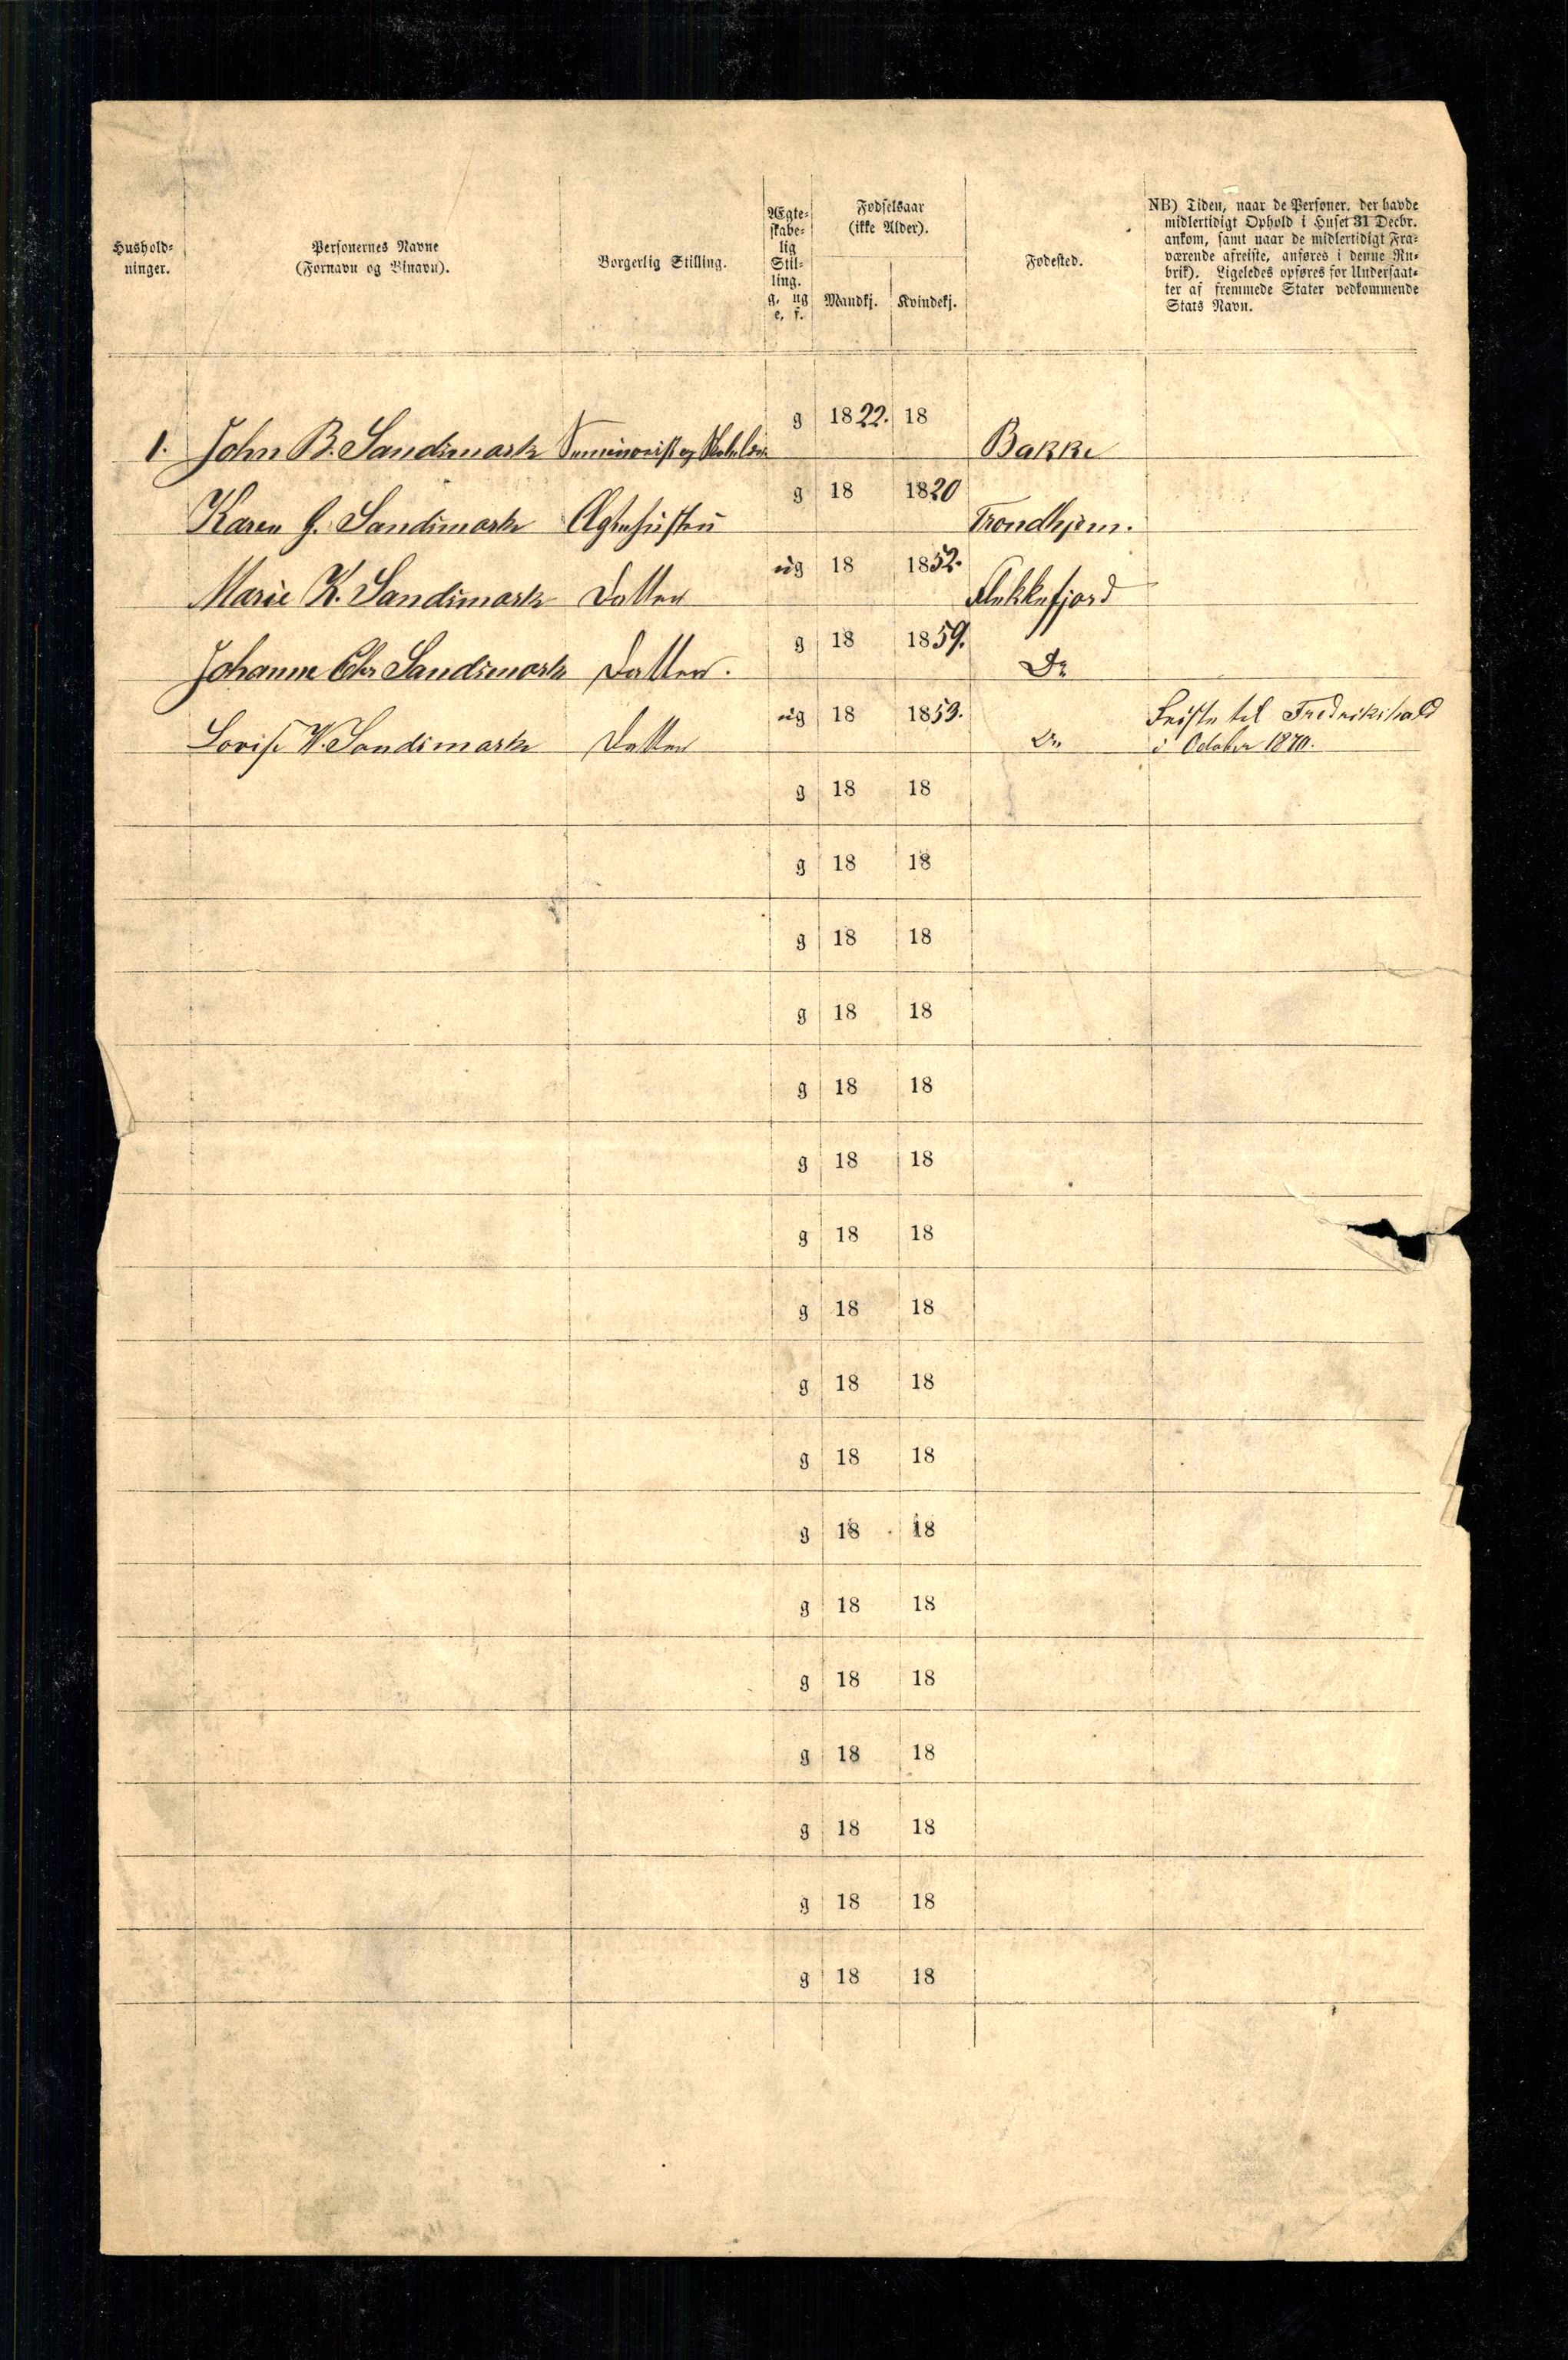 Hushold-
ninger.
Personernes Navne
(Fornavn og Binavn).
Borgerlig Stilling.
Ægte-
skabe-
lig
Stil-
ling.
g. ug
e, f.
Fødselsaar
(ikke Alder).
Mandkj. Kvindekj.
Fødested.
NB) Tiden, naar de Personer, der havde
midlertidigt Ophold i Huset 31 Decbr.
ankom, samt naar de midlertidigt Fra-
værende afreiste, anføres i denne Ru-
brik). Ligeledes opføres for Undersaat-
ter af fremmede Stater vedkommende
Stats Navn.
1. John B. Sandsmark Seminarist og g 1822. 18 Bakke
Karen G. Sandsmark Ægtehustru g 18 1820 Trondhjem.
Marie K. Sandsmark Datter ug 18 1852. Flekkefjord
Johanne Chr Sandsmark Datter. g 18 1859. Do
Lovise W. Sandsmark Datter ug 18 1853. Do Reiste til Frederikshald
i October 1870.
g 18 18
g 18 18
g 18 18
g 18 18
g 18 18
g 18 18
g 18 18
g 18 18
g 18 18
g 18 18
g 18 18
g 18 18
g 18 18
g 18 18
g 18 18
g 18 18
g 18 18